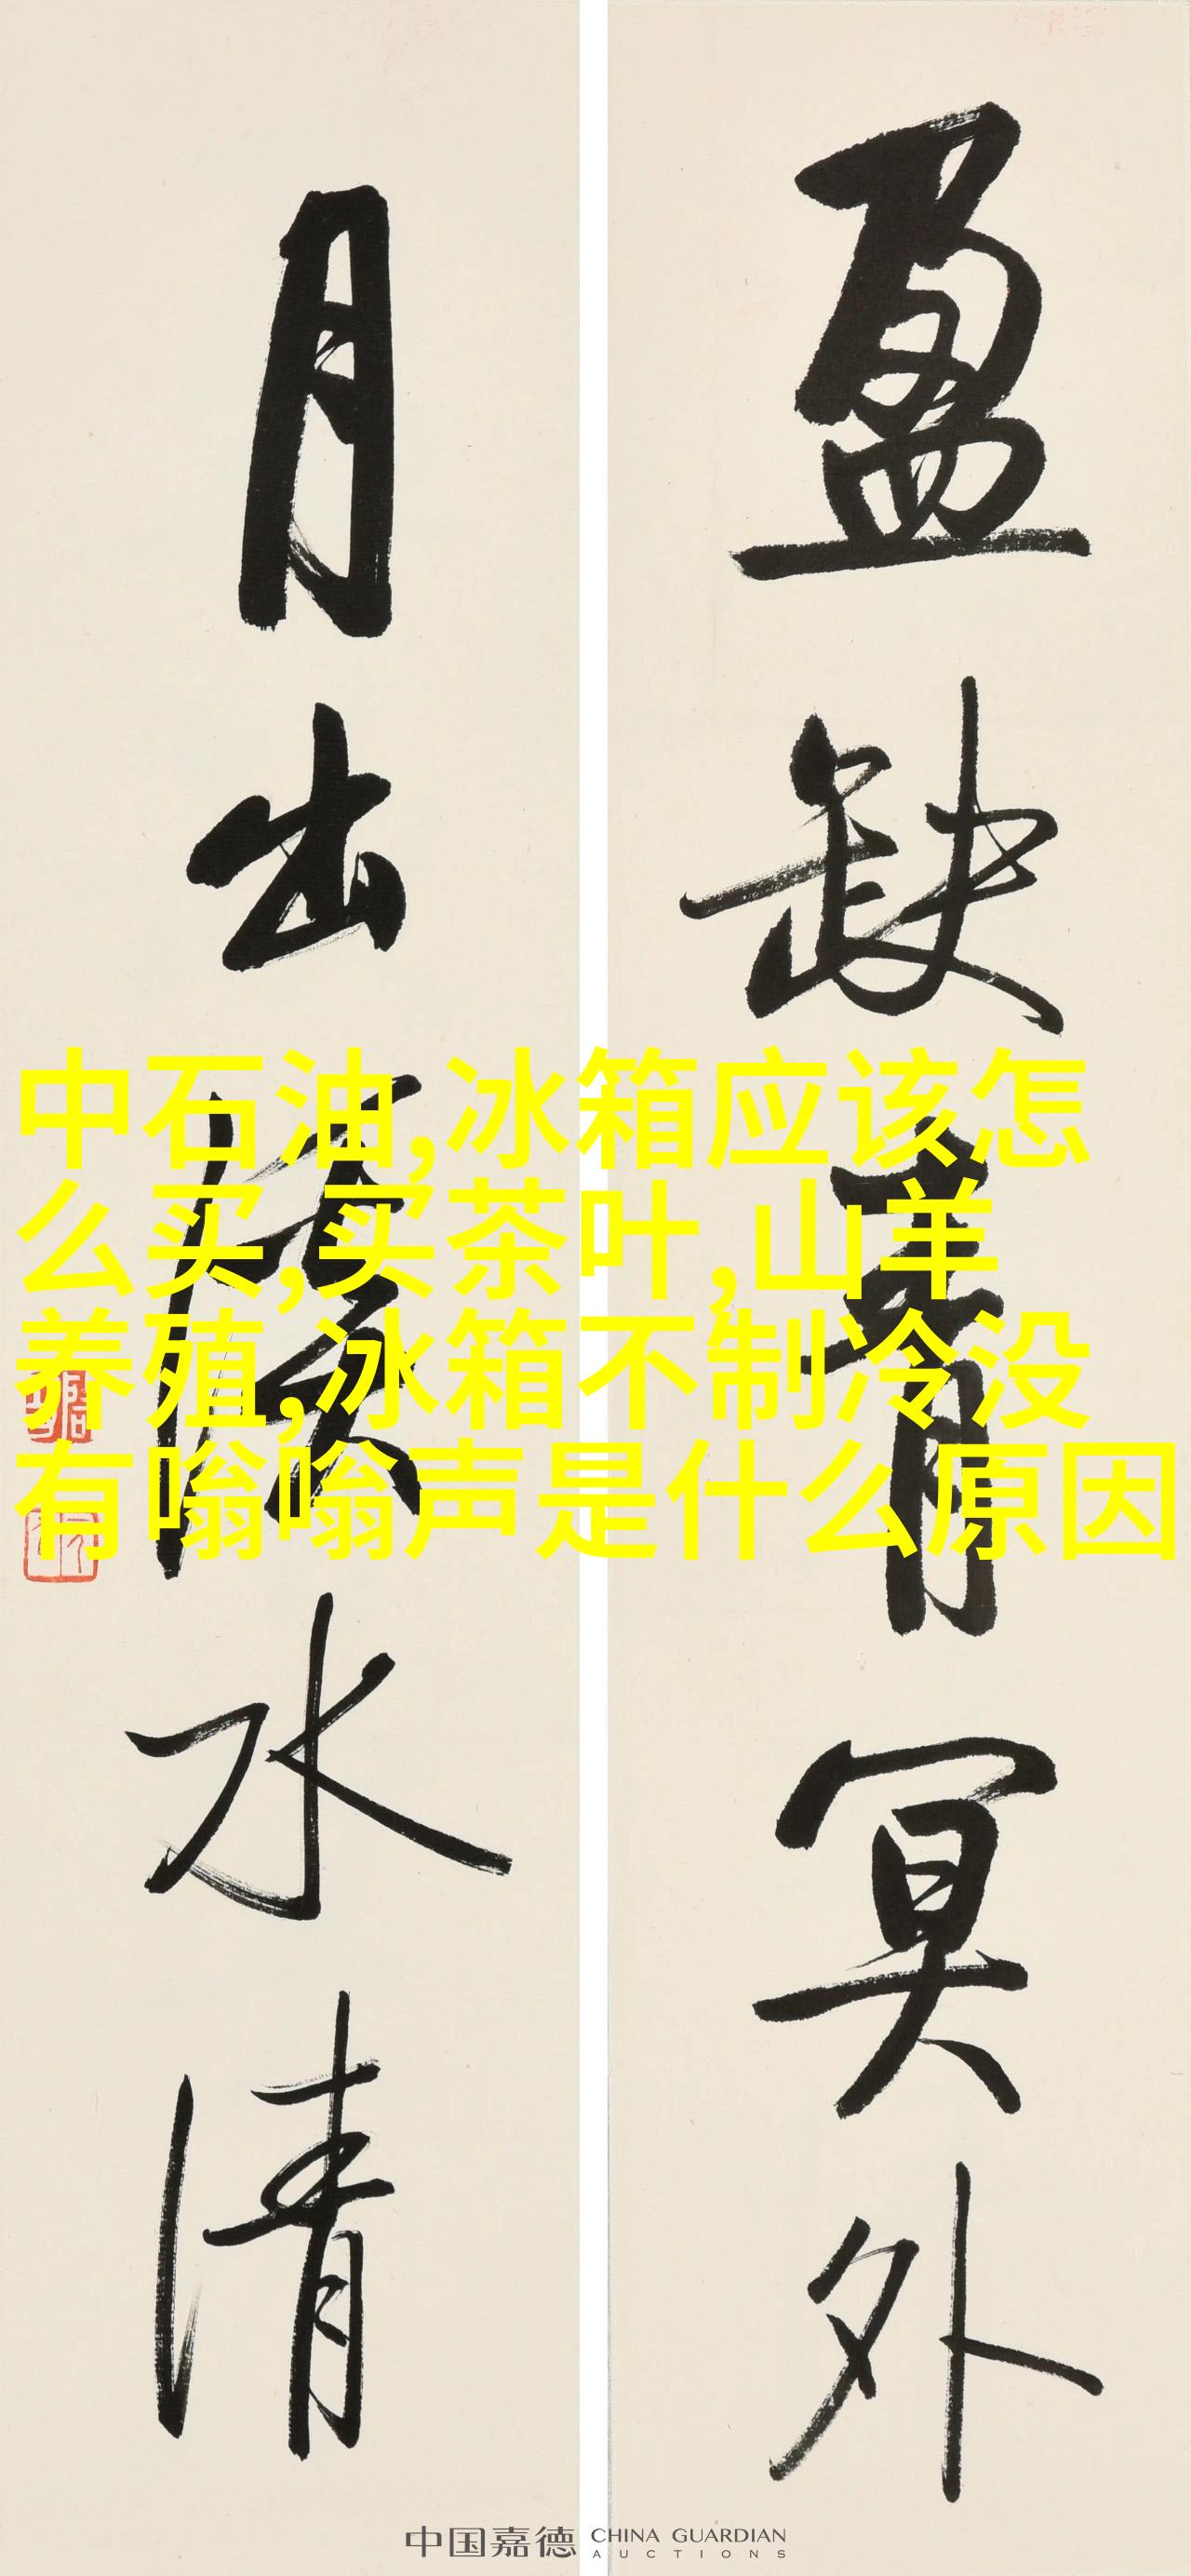 盈缺青冥外
月出
水清
中石油,冰箱应该怎
么买,买茶叶,山羊
养殖,冰箱不制冷没
有嗡嗡声是什么原因
中国嘉德 CHINA GUARDIAN
AUCTIONS